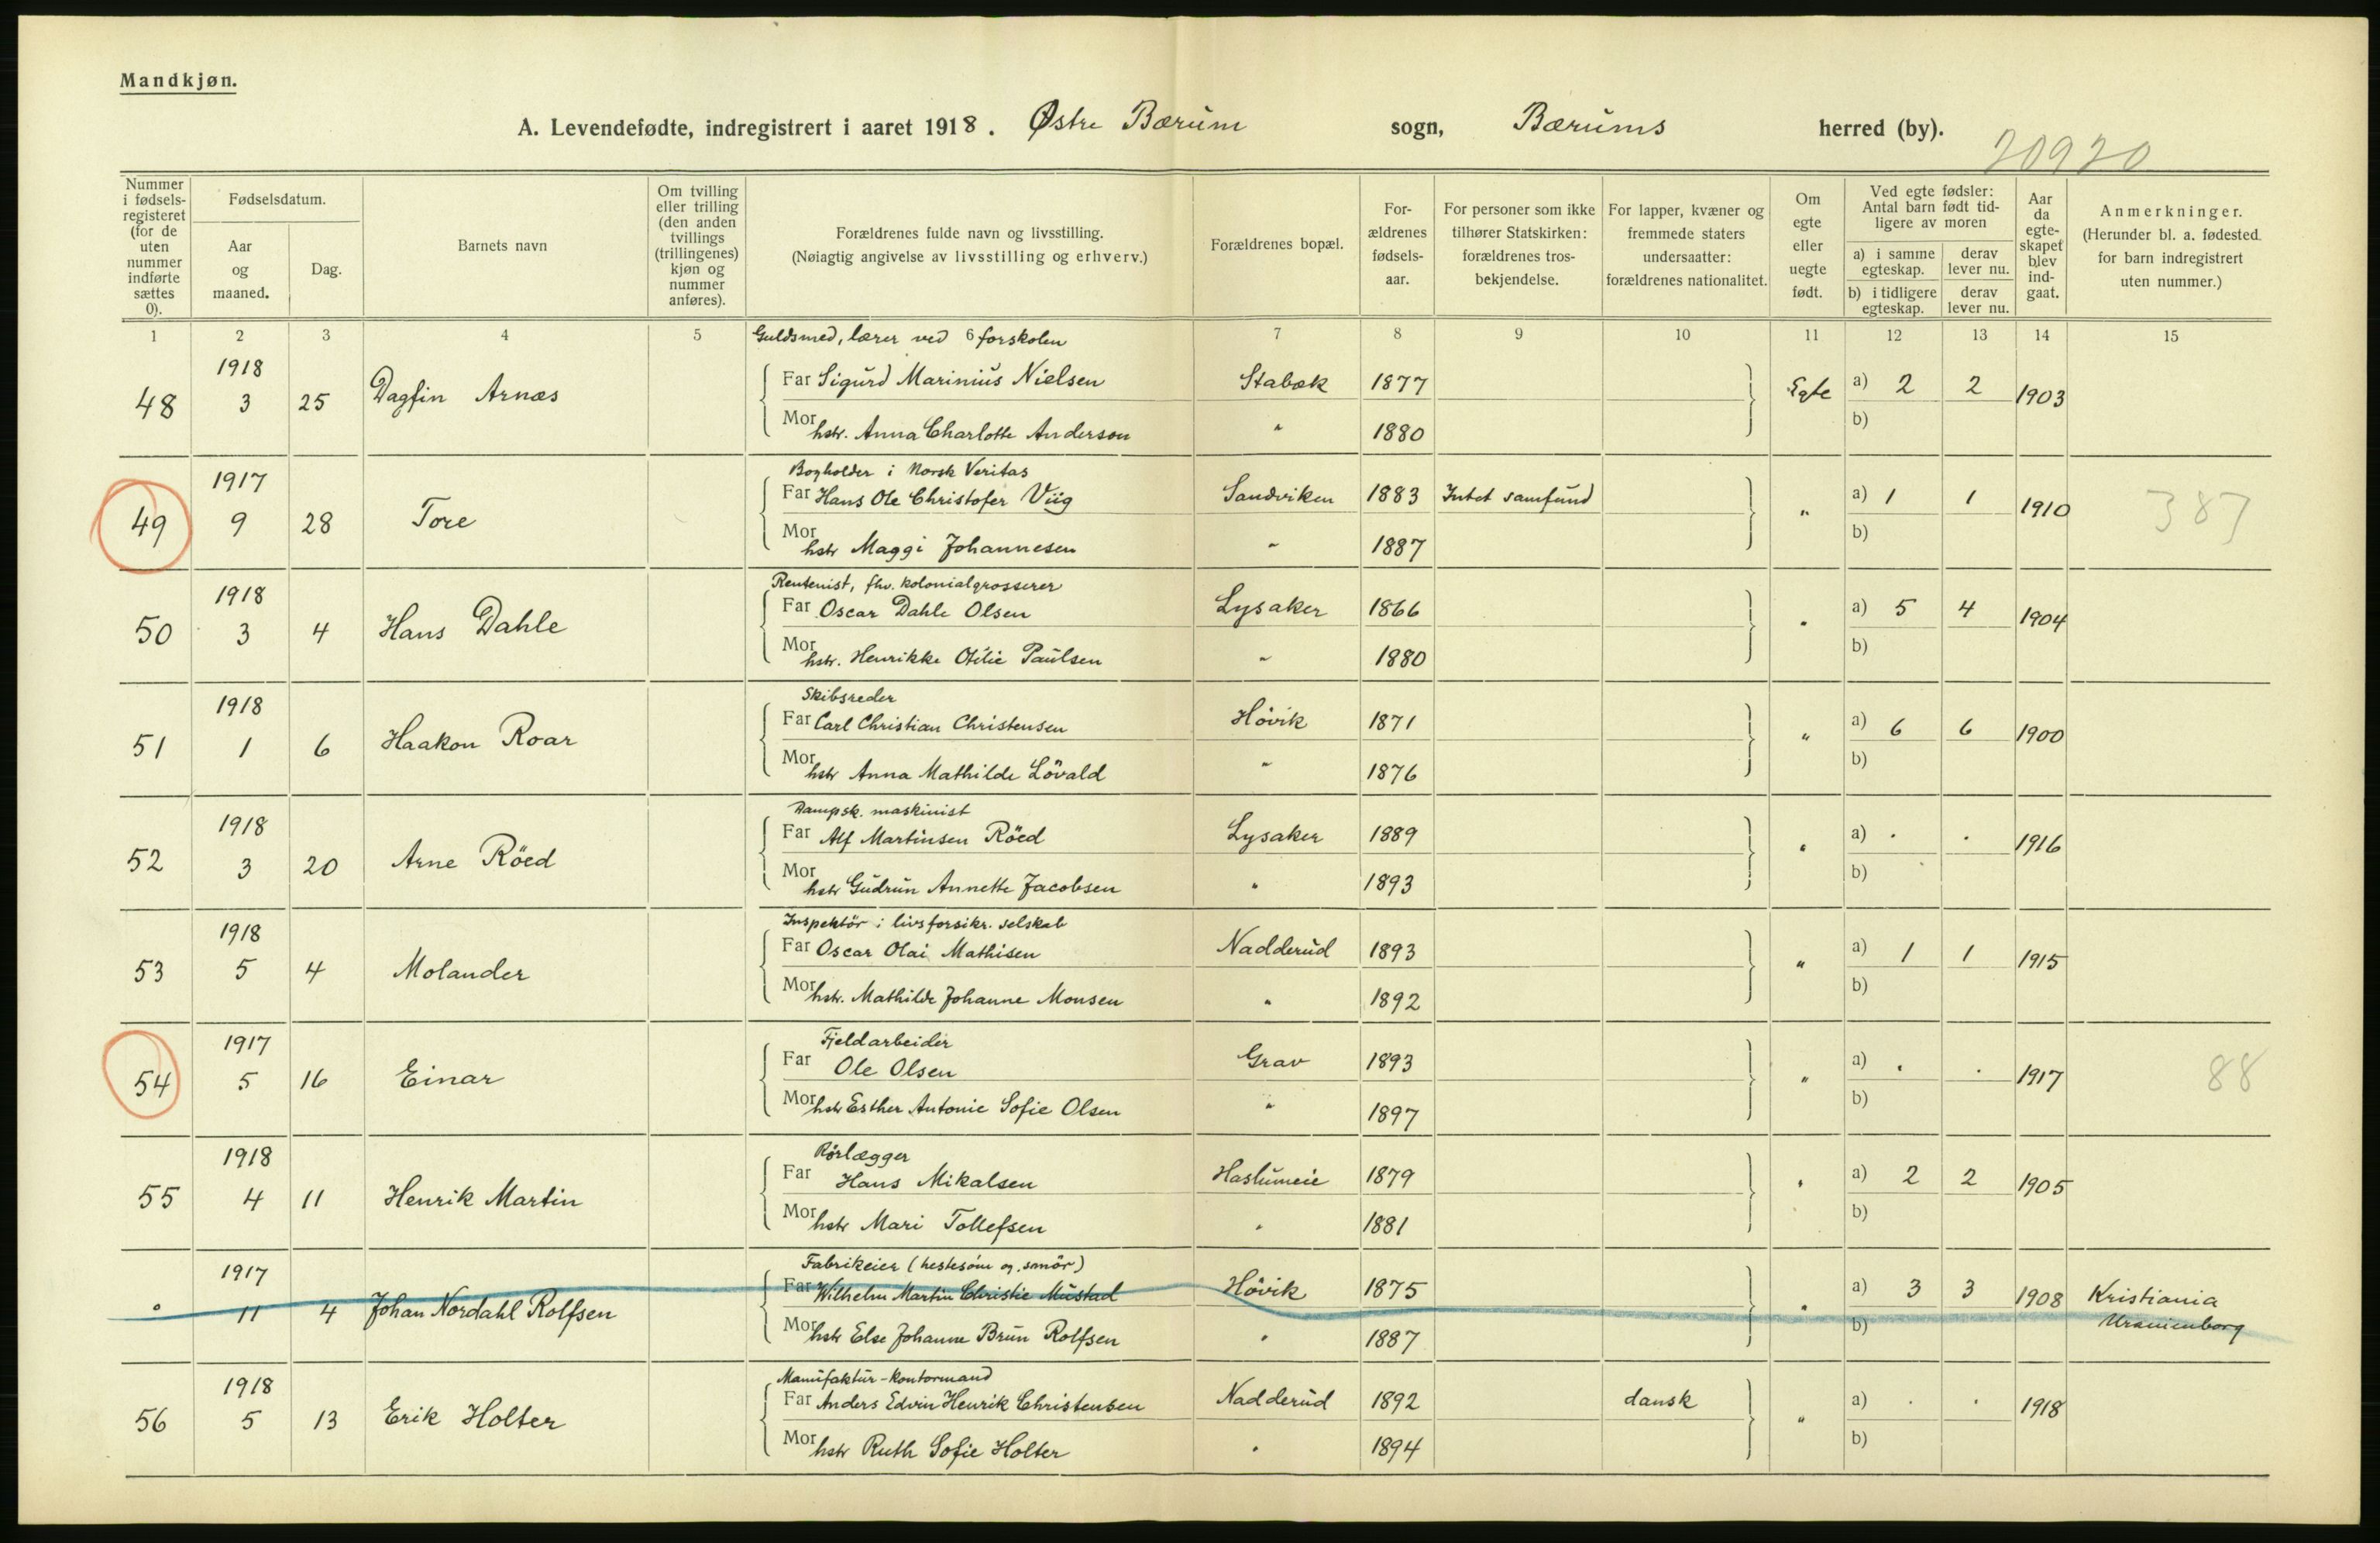 Mandkjøn.
A. Levendefødte, indregistrert i aaret 1918. Østre Bærum sogn, Bærums herred (by).
20920
Nummer i fødsels-registeret (for de uten nummer indførte sættes 0).
Fødselsdatum.
Aar og maaned.
Dag.
Barnets navn
Om tvilling eller trilling (den anden tvillings (trillingenes) kjøn og nummer anføres).
Forældrenes fulde navn og livsstilling.
(Nøiagtig angivelse av livsstilling og erhverv.)
Forældrenes bopæl.
For-ældrenes fødsels-aar.
For personer som ikke tilhører Statskirken: forældrenes tros-bekjendelse.
For lapper, kvæner og fremmede staters undersaatter: forældrenes nationalitet.
Om egte eller uegte født.
Ved egte fødsler: Antal barn født tid-ligere av moren
a) i samme egteskap.
derav lever nu.
b) i tidligere egteskap.
derav lever nu.
Aar da egte-skapet blev ind-gaat.
Anmerkninger.
(Herunder bl. a. fødested for barn indregistrert uten nummer.)
1 2 3 4 5 6 7 8 9 10 11 12 13 14 15
Guldsmed, lærer ved forskolen
1918
48 3 25 Dagfin Arnæs Far Sigurd Marinius Nielsen Stabæk 1877 Egte a) 2 2 1903
Mor hstr. Anna Charlotte Anderson " 1880 b)
1917 Bogholder i Norsk Veritas
49 9 28 Tore Far Hans Ole Christofer Viig Sandviken 1883 Intet samfund " a) 1 1 1910 387
Mor hstr Maggi Johannesen " 1887 b)
1918 Rentenist, fhv. kolonialgrosserer
50 3 4 Hans Dahle Far Oscar Dahle Olsen Lysaker 1866 " a) 5 4 1904
Mor hstr. Henrikke Otilie Paulsen " 1880 b)
1918 Skibsreder
51 1 6 Haakon Roar Far Carl Christian Christensen Hövik 1871 " a) 6 6 1900
Mor hstr Anna Mathilde Lövald " 1876 b)
1918 Dampsk. maskinist
52 3 20 Arne Röed Far Alf Martinsen Röed Lysaker 1889 " a) . . 1916
Mor hstr Gudrun Annette Jacobsen " 1893 b)
1918 Inspektör i livsforsikr. selskab
53 5 4 Molander Far Oscar Olai Mathisen Nadderud 1893 " a) 1 1 1915
Mor hstr. Mathilde Johanne Monsen " 1892 b)
1917 Fjeldarbeider
54 5 16 Einar Far Ole Olsen Grav 1893 " a) . . 1917 88
Mor hstr Esther Antonie Sofie Olsen " 1897 b)
1918 Rörlægger
55 4 11 Henrik Martin Far Hans Mikalsen Haslumeie 1879 " a) 2 2 1905
Mor hstr Mari Tollefsen " 1881 b)
1917 Fabrikeier (hestesöm og smör)
0 11 4 Johan Nordahl Rolfsen Far Wilhelm Martin Christie Mustad Hövik 1875 " a) 3 3 1908 Kristiania
Mor hstr Else Johanne Brun Rolfsen " 1887 b) Uranienborg
1918 Manufaktur-kontormand
56 5 13 Erik Holter Far Anders Edvin Henrik Christensen Nadderud 1892 dansk " a) . . 1918
Mor hstr Ruth Sofie Holter " 1894 b)